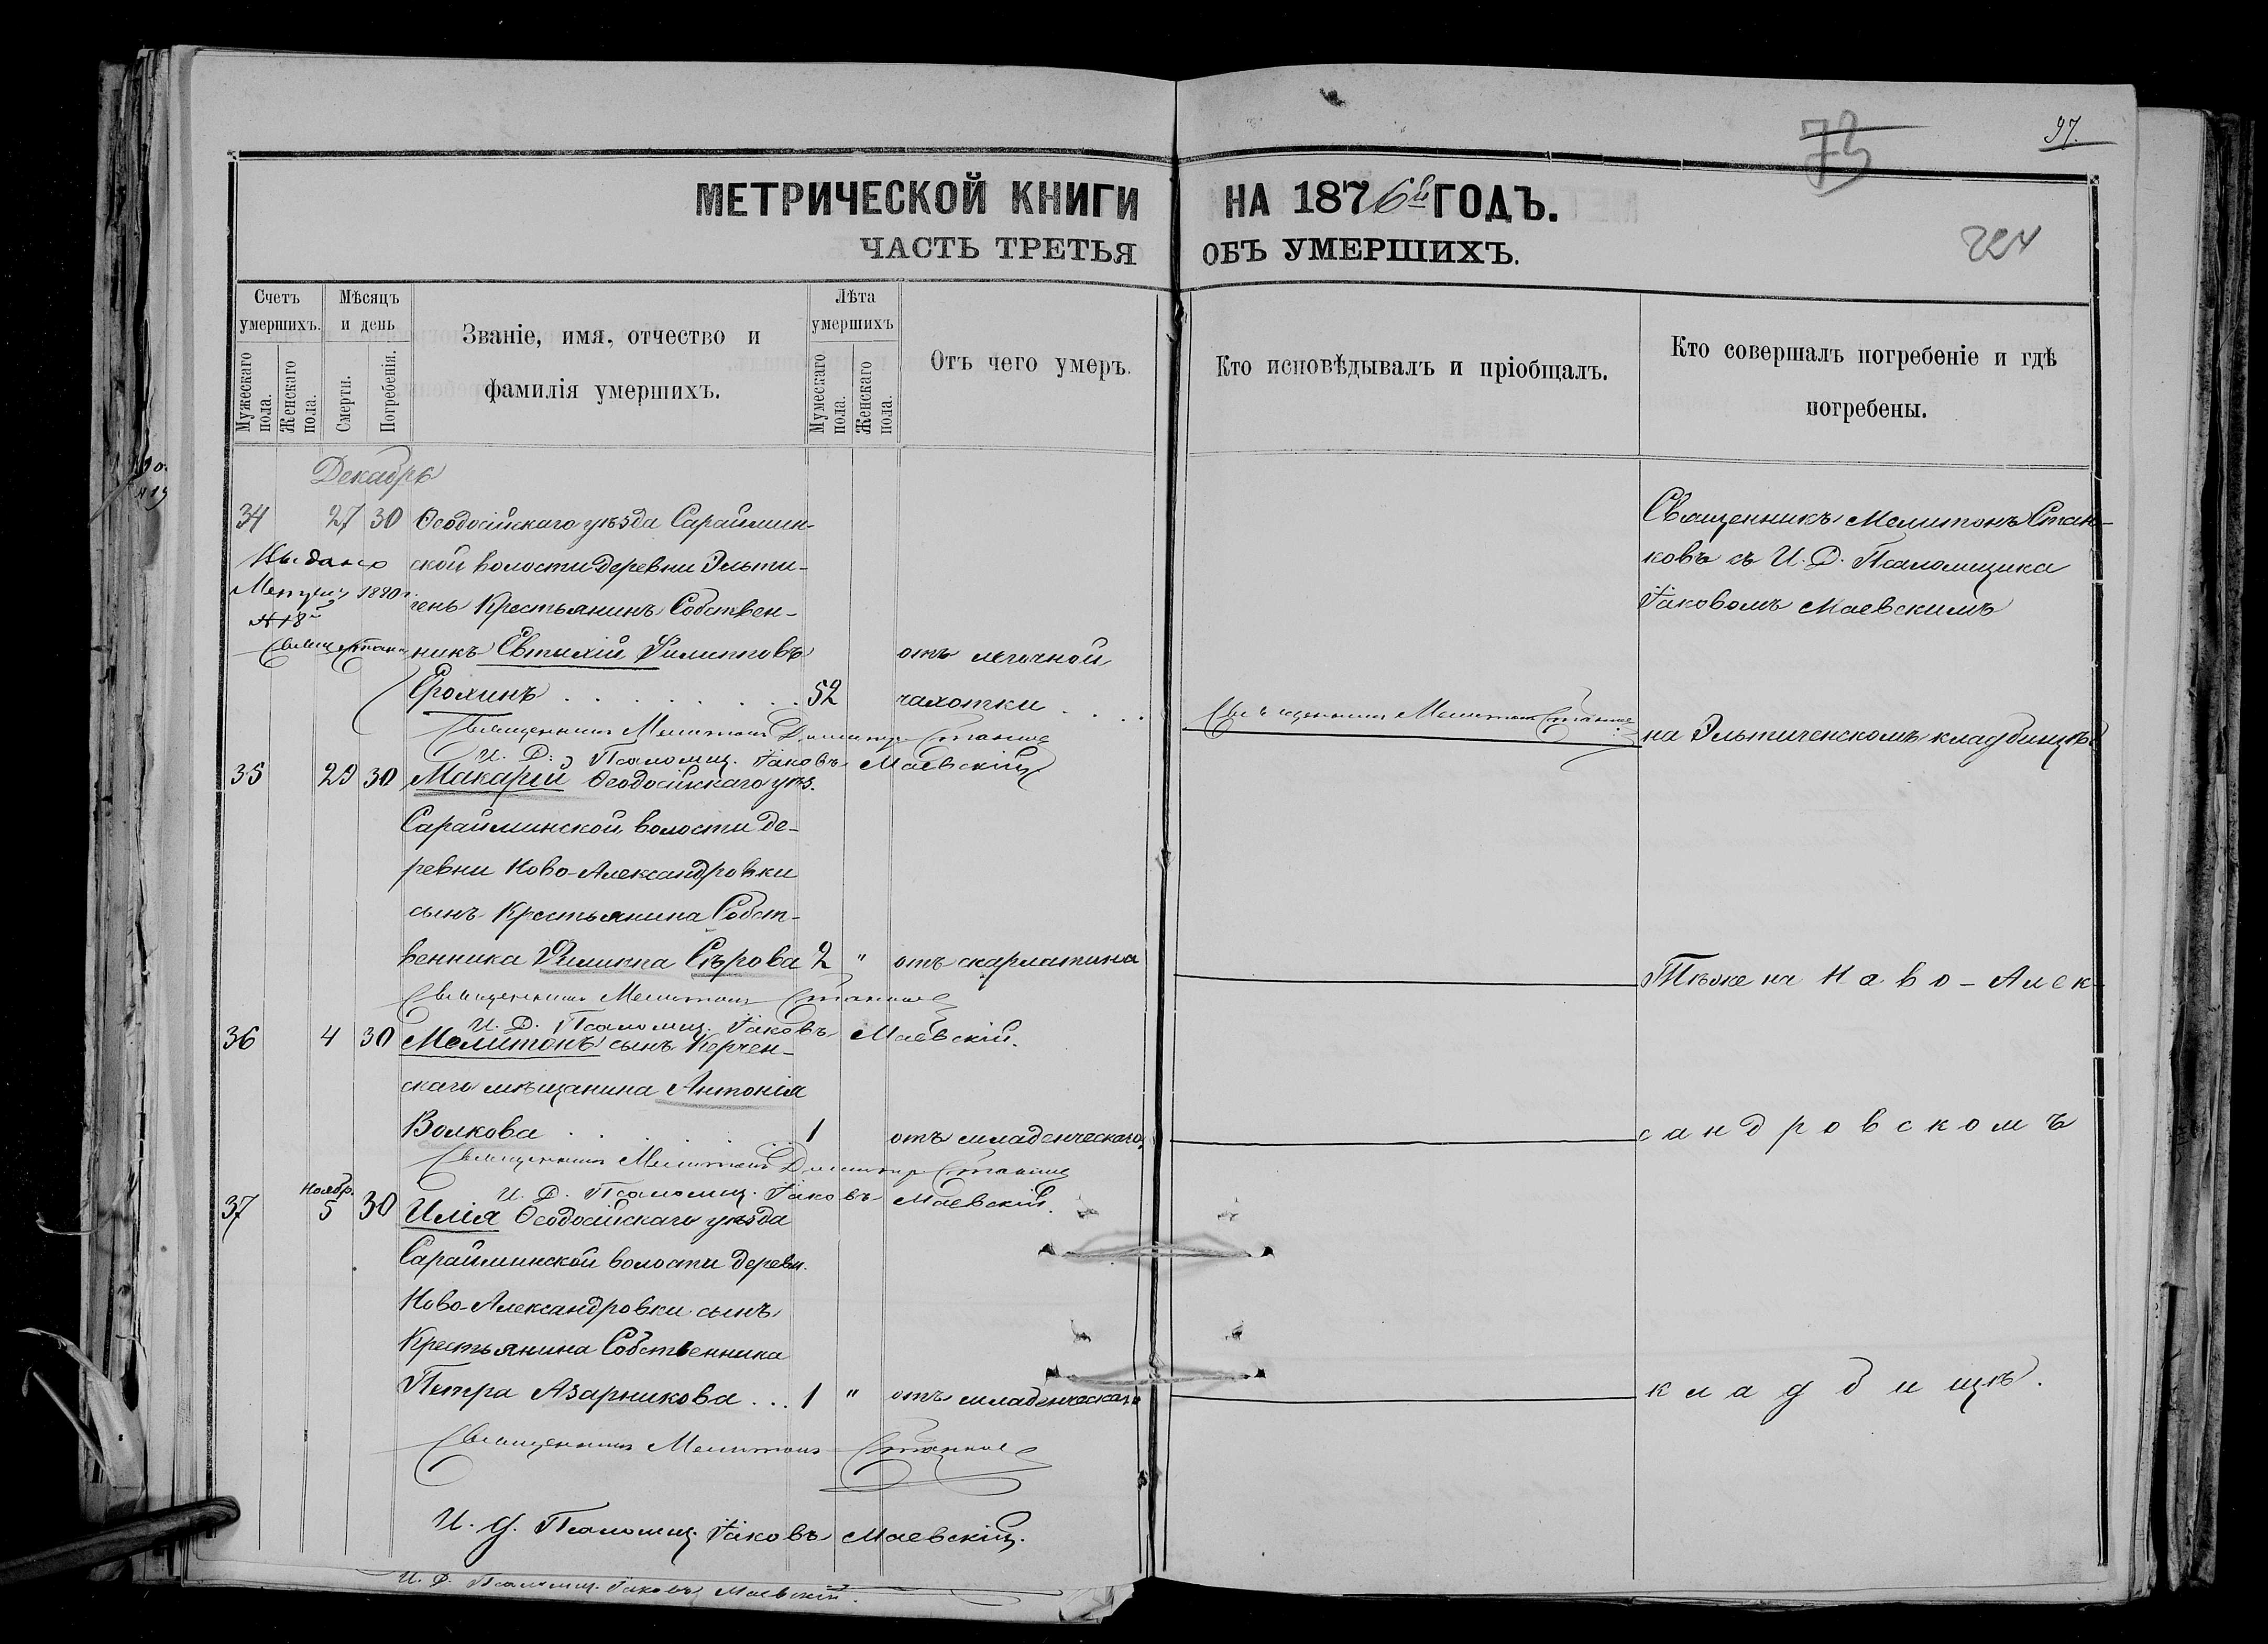 97.
73
224
МЕТРИЧЕСКОЙ КНИГИ НА 1876й ГОДЪ.
ЧАСТЬ ТРЕТЬЯ ОБЪ УМЕРШИХЪ.
Счетъ умершихъ.
Мужескаго пола.
Женскаго пола.
Мѣсяцъ и день
Смерти.
Погребенія.
Званіе, имя, отчество и
фамилія умершихъ.
Лѣта умершихъ
Мужескаго пола.
Женскаго пола.
Отъ чего умеръ.
Кто исповѣдывалъ и пріобщалъ.
Кто совершалъ погребеніе и гдѣ
погребены.
Декабрь
34 27 30 Ѳеодосійскаго уѣзда Сараймин-
ской волости деревни Эльти-
генъ Крестьянинъ Собствен-
никъ Евтихій Филипповъ отъ легочной
Ерохинъ 52 чахотки
Выдано
Метрич. 1890 г.
№ 18
Священникъ Мелитонъ Станковъ
Священникъ Мелитонъ Стан-
ковъ съ И. Д. Псаломщика
Іаковомъ Маевскимъ
на Эльтигенскомъ кладбищѣ
Священникъ Мелитонъ Димитр. Станковъ
И. Д. Псаломщ. Іаковъ Маевскій
35 29 30 Макарій Ѳеодосійскаго уѣз.
Сарайминской волости де-
ревни Ново-Александровки
сынъ Крестьянина Собст-
венника Филиппа Сѣрова 2 " отъ скарлатина
Тѣже на Ново-Алек-
Священникъ Мелитонъ Станковъ
И. Д. Псаломщ. Іаковъ Маевскій.
36 4 30 Мелитонъ сынъ Керчен-
скаго мѣщанина Антонія
Волкова 1 отъ младенческаго
сандровскомъ
Священникъ Мелитонъ Димитр. Станковъ
И. Д. Псаломщ. Іаковъ Маевскій.
37 Ноябр. 5 30 Илія Ѳеодосійскаго уѣзда
Сарайминской волости деревн.
Ново-Александровки сынъ
Крестьянина Собственника
Петра Азарникова 1 " отъ младенческаго
кладбищѣ.
Священникъ Мелитонъ Станковъ
И. Д. Псаломщ. Іаковъ Маевскій.
И. Д. Псаломщ. Іаковъ Маевскій.